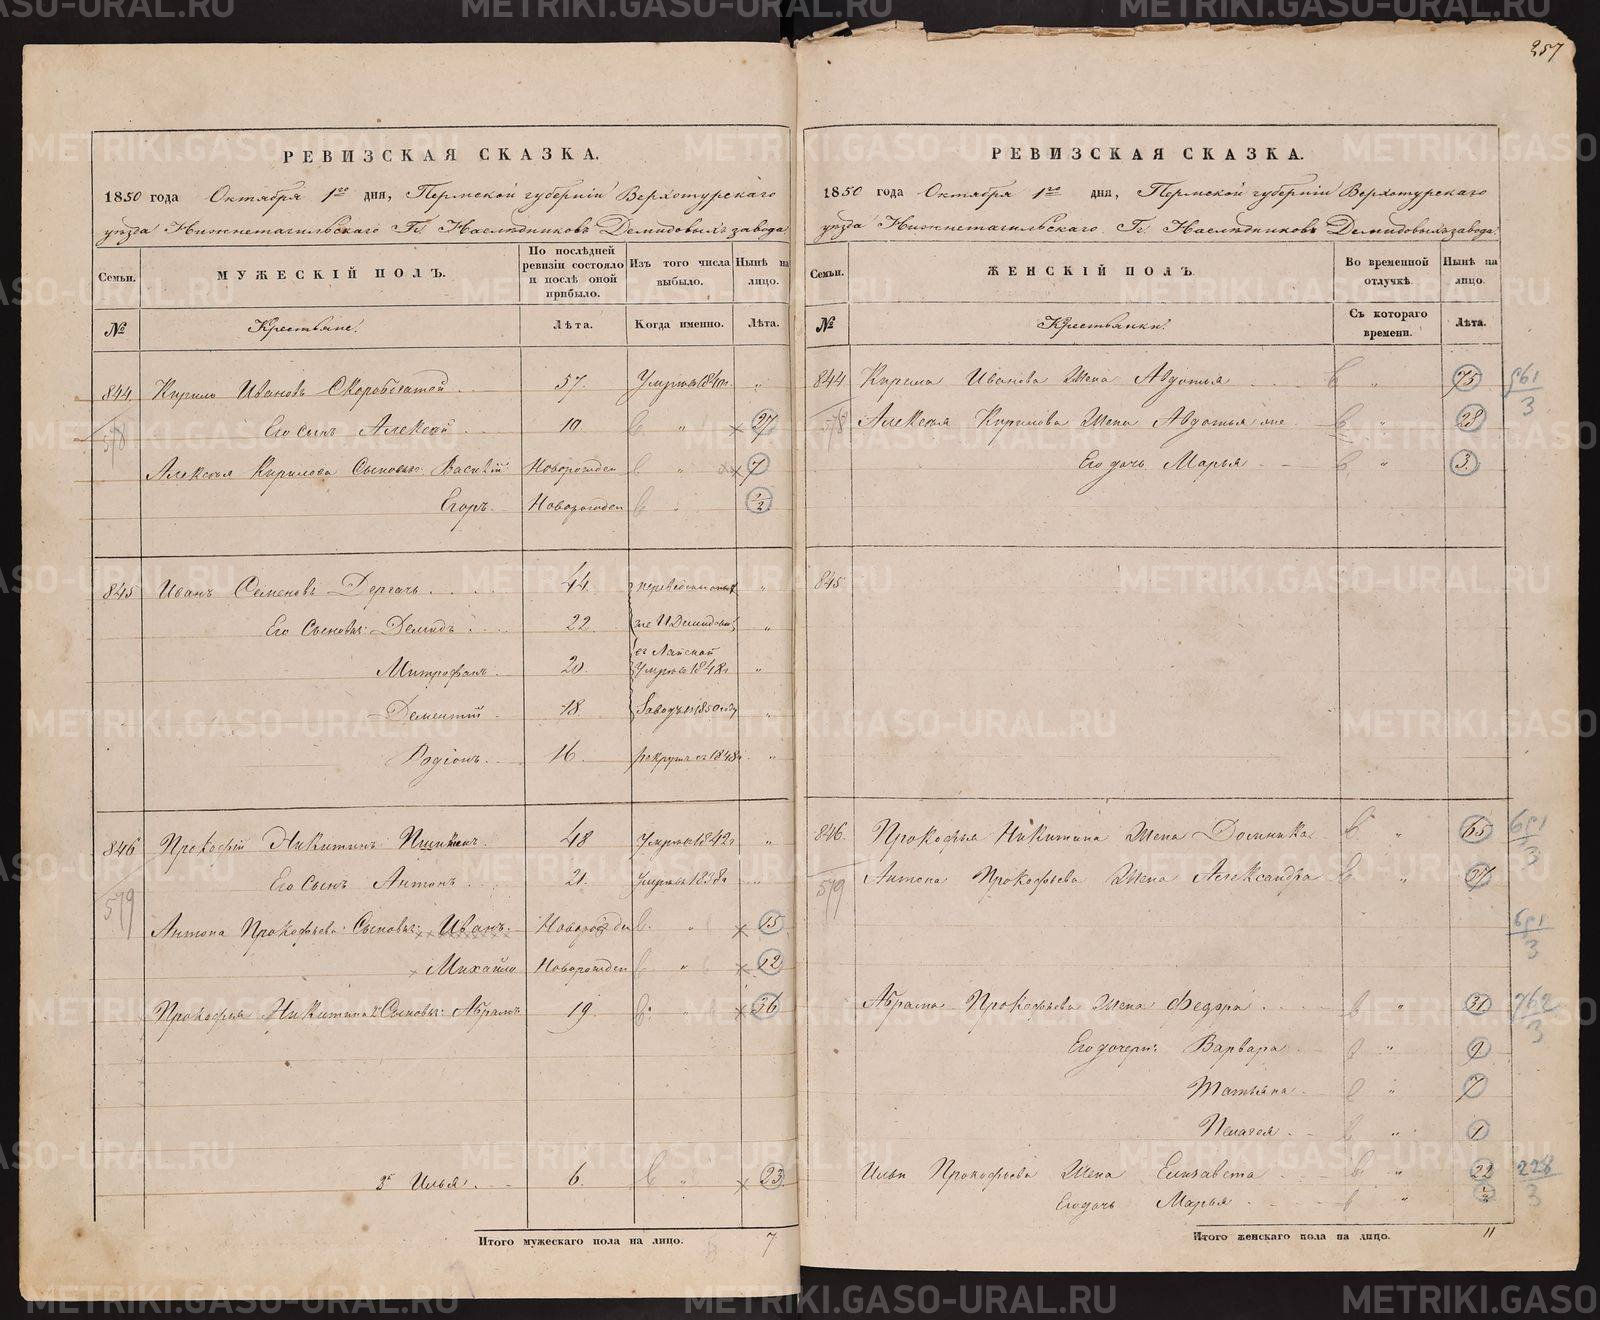 257
РЕВИЗСКАЯ СКАЗКА.
1850 года Октября 1го дня, Пермской губерніи Верхотурскаго
уѣзда Нижнетагильскаго Гг. Наслѣдниковъ Демидовыхъ завода
Семьи. МУЖЕСКІЙ ПОЛЪ. По послѣдней ревизіи состояло и послѣ оной прибыло. Изъ того числа выбыло. Нынѣ на лицо.
№ Крестьяне. Лѣта. Когда именно. Лѣта.
844 Кирило Ивановъ Скоробогатой 57. Умеръ въ 1840 г. „
578 Его сынъ Алексѣй 10 „ 27
Алексѣя Кирилова Сыновья: Василій Новорожден „ 7
Егоръ. Новорожден „ 1/2
845 Иванъ Семеновъ Дергачь 44. „
Его Сыновья: Демидъ 22. „
Митрофанъ 20. Лайской Умеръ въ 1848 г „
Дементій 18. Заводъ въ 1850 „
Родіонъ 16. рекрутъ въ 1848 г. „
846 Прокофій Никитинъ 48 Умеръ въ 1842 г „
579 Его Сынъ Антонъ 21. Умеръ въ 1838 г „
Антона Прокофьева Сыновья: Иванъ Новорожден „ 15
Михайло Новорожден „ 12
Прокофья Никитина 2й Сыновья: Абрамъ 19. „ 36
3й Илья. 6. „ 23
Итого мужескаго пола на лицо. 7
РЕВИЗСКАЯ СКАЗКА.
1850 года Октября 1го дня, Пермской губерніи Верхотурскаго
уѣзда Нижнетагильскаго Гг. Наслѣдниковъ Демидовыхъ завода.
Семьи. ЖЕНСКІЙ ПОЛЪ Во временной отлучкѣ. Нынѣ на лицо.
№ Крестьянки. Съ котораго времени. Лѣта.
844 Кирила Иванова Жена Авдотья „ 75
578 Алексѣя Кирилова Жена Авдотья „ 28
Его дочь Марья „ 3.
845
846. Прокофья Никитина Жена Домника „ 65
579 Антона Прокофьева Жена Александра „ 37
Абрама Прокофьева Жена Федора „ 31.
Его дочери: Варвара „ 9
Татьяна „ 7
Пелагея „ 1
Ильи Прокофьева Жена Елизавета „ 22
Его дочь Марья „ 1/2
Итого женскаго пола на лицо. 11
METRIKI.GASO-URAL.RU